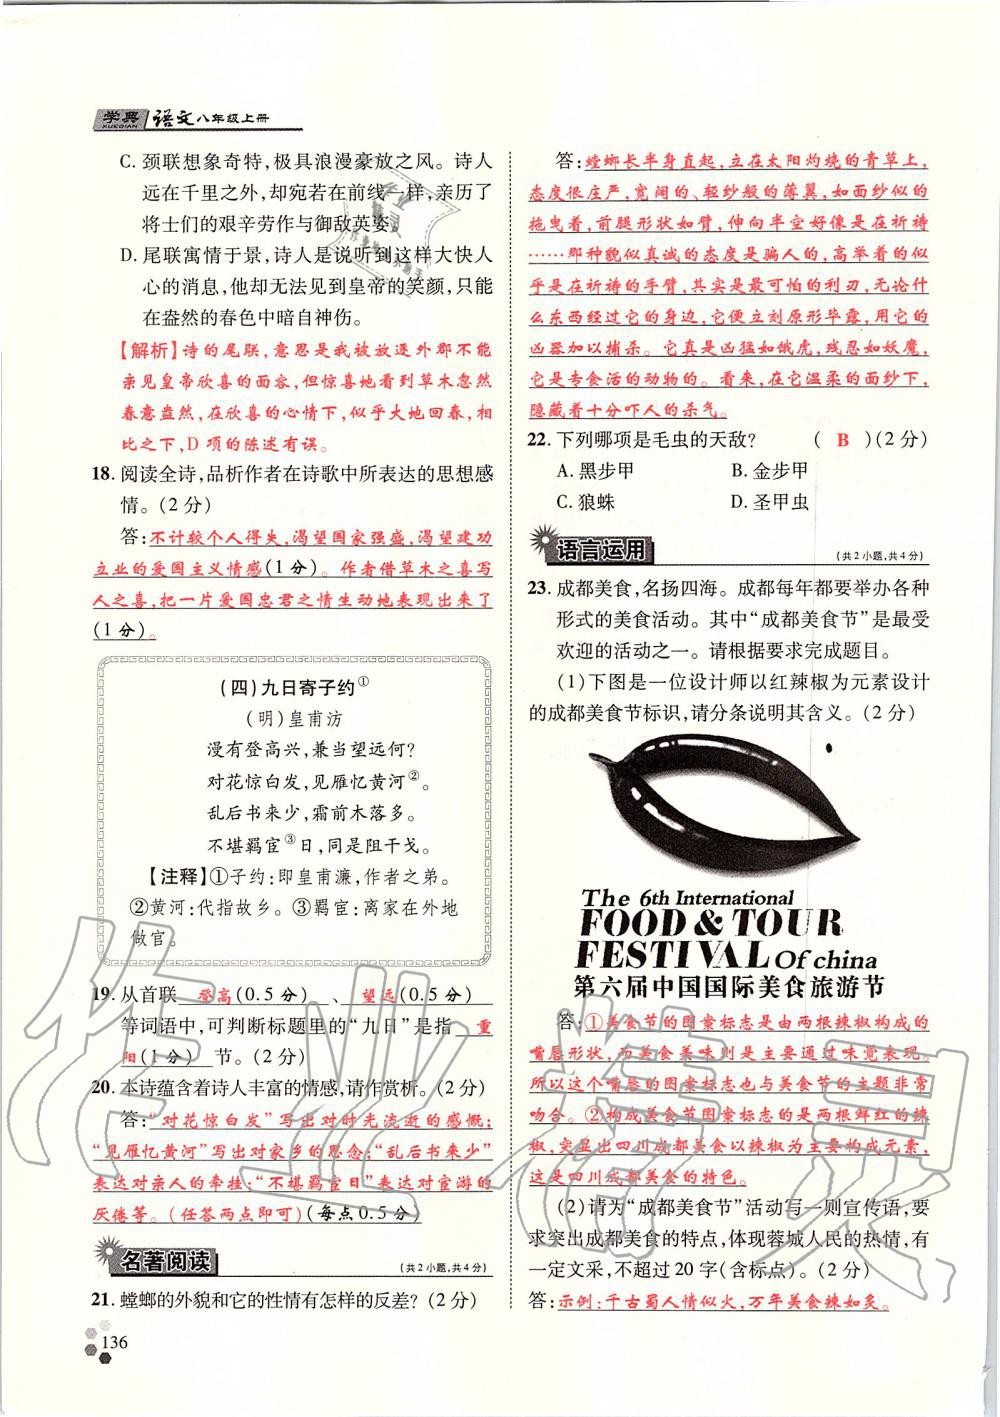 学典 语文八年级上册
XUEDIAN
C. 颈联想象奇特,极具浪漫豪放之风。诗人
远在千里之外,却宛若在前线一样,亲历了
将士们的艰辛劳作与御敌英姿。
D. 尾联寓情于景,诗人是说听到这样大快人
心的消息,他却无法见到皇帝的笑颜,只能
在盎然的春色中暗自神伤。
【解析】诗的尾联,意思是我被放逐外郡不能
亲见皇帝欣喜的面容,但惊喜地看到草木忽然
春意盎然,在欣喜的心情下,似乎大地回春,相
比之下,D 项的陈述有误。
18. 阅读全诗,品析作者在诗歌中所表达的思想感
情。(2 分)
答:不计较个人得失,渴望国家强盛,渴望建功
立业的爱国主义情感(1 分)。作者借草木之喜写
人之喜,把一片爱国忠君之情生动地表现出来了
(1 分)。
(四)九日寄子约①
(明)皇甫汸
漫有登高兴,兼当望远何?
对花惊白发,见雁忆黄河②。
乱后书来少,霜前木落多。
不堪羁宦③日,同是阻干戈。
【注释】①子约:即皇甫濂,作者之弟。
②黄河:代指故乡。③羁宦:离家在外地
做官。
19. 从首联 登高(0.5 分) 、 望远(0.5 分)
等词语中,可判断标题里的“九日”是指 重
阳(1 分) 节。(2 分)
20. 本诗蕴含着诗人丰富的情感,请作赏析。(2 分)
答:“对花惊白发”写出对时光流逝的感慨;
“见雁忆黄河”写出对家乡的思念;“乱后书来少”
表达对亲人的牵挂;“不堪羁宦日”表达对宦游的
厌倦等。(任答两点即可)(每点0.5 分)
名著阅读 (共2小题,共4分)
21. 螳螂的外貌和它的性情有怎样的反差?(2 分)
136
答:螳螂长半身直起,立在太阳灼烧的青草上,
态度很庄严,宽阔的、轻纱般的薄翼,如面纱似的
拖曳着,前腿形状如臂,伸向半空好像是在祈祷
……那种貌似真诚的态度是骗人的,高举着的似
乎是在祈祷的手臂,其实是最可怕的利刃,无论什
么东西经过它的身边,它便立刻原形毕露,用它的
凶器加以捕杀。它真是凶猛如饿虎,残忍如妖魔,
它是专食活的动物的。看来,在它温柔的面纱下,
隐藏着十分吓人的杀气。
22. 下列哪项是毛虫的天敌? ( B )(2 分)
A. 黑步甲 B. 金步甲
C. 狼蛛 D. 圣甲虫
语言运用 (共2小题,共4分)
23. 成都美食,名扬四海。成都每年都要举办各种
形式的美食活动。其中“成都美食节”是最受
欢迎的活动之一。请根据要求完成题目。
(1)下图是一位设计师以红辣椒为元素设计
的成都美食节标识,请分条说明其含义。(2 分)
The 6th International
FOOD & TOUR
FESTIVAL Of china
第六届中国国际美食旅游节
答:①美食节的图案标志是由两根辣椒构成的
嘴唇形状,而美食美味则是主要通过味觉表现。
所以这个嘴唇的图案标志也与美食节的主题非常
吻合。②构成美食节图案标志的是两根鲜红的辣
椒,突显出四川成都美食以辣椒为主要构成元素,
这是四川成都美食的特色。
(2)请为“成都美食节”活动写一则宣传语,要
求突出成都美食的特点,体现蓉城人民的热情,有
一定文采,不超过 20 字(含标点)。(2 分)
答:示例:千古蜀人情似火,万年美食辣如炙。